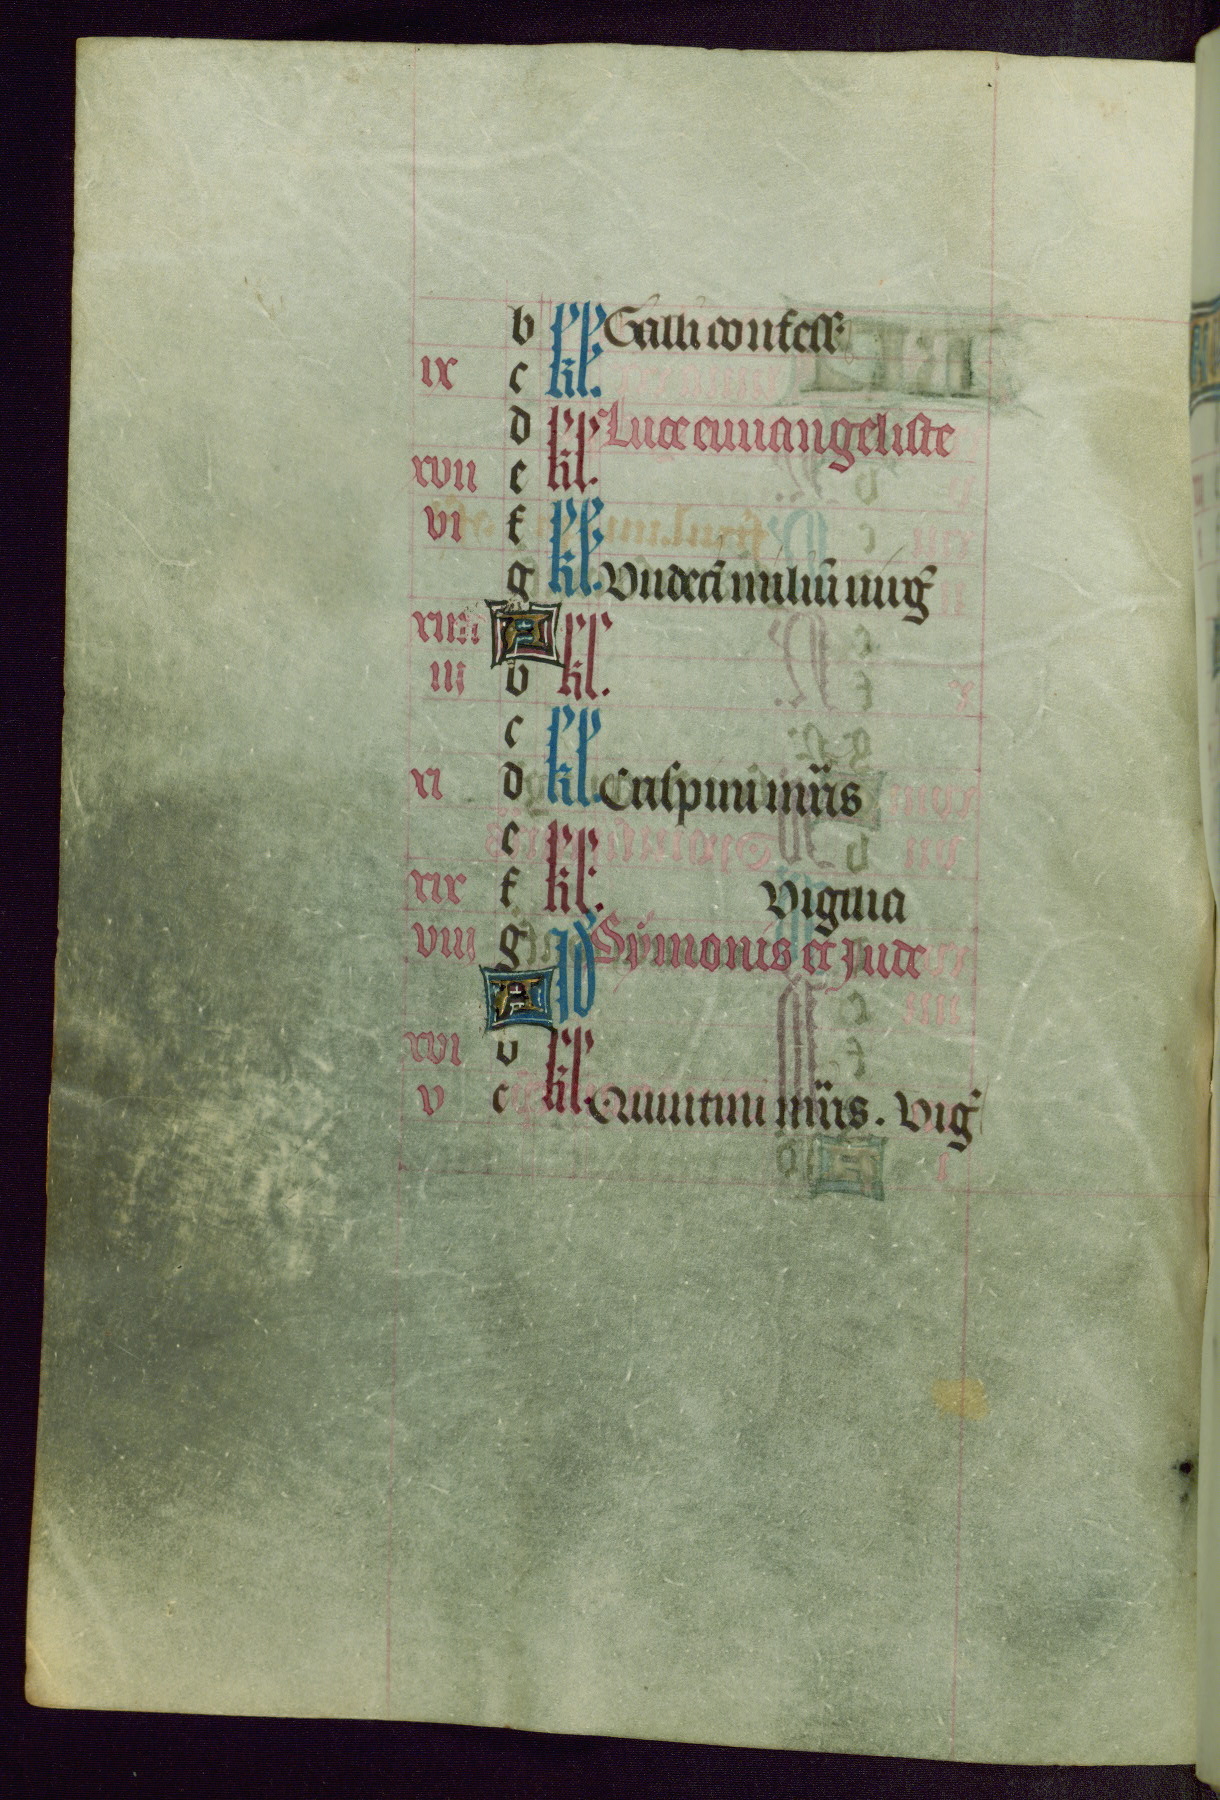 b Galli confess
ix c kl.
d Luce euuangeliste
xvii e kl.
vi f
g kl. Vndecī miliū uirg
xiiii A
iii b kl.
c
xi d kl. Crispini mr̄is
e
xix f kl. Vigilia
viii g Id Symonis et Jude
A
xvi b
v c kl. Quintini mr̄is. Vig